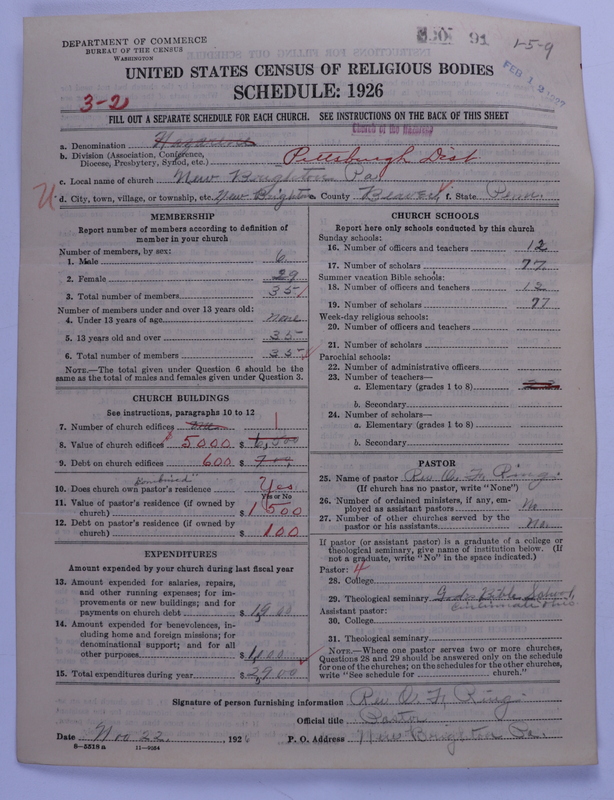 DEPARTMENT OF COMMERCE
BUREAU OF THE CENSUS
WASHINGTON
91
1-5-9
FEB 12 1927
UNITED STATES CENSUS OF RELIGIOUS BODIES
SCHEDULE: 1926
3-2
FILL OUT A SEPARATE SCHEDULE FOR EACH CHURCH. SEE INSTRUCTIONS ON THE BACK OF THIS SHEET
Church of the Nazarene
a. Denomination Nazarene
b. Division (Association, Conference, Diocese, Presbytery, Synod, etc.) Pittsburgh Dist
c. Local name of church New Brighton Pa
d. City, town, village, or township, etc. New Brighton e. County Beaver f. State Penn.
MEMBERSHIP
Report number of members according to definition of
member in your church
Number of members, by sex:
1. Male 6
2. Female 29
3. Total number of members 35
Number of members under and over 13 years old:
4. Under 13 years of age none
5. 13 years old and over 35
6. Total number of members 35
NOTE.—The total given under Question 6 should be
same as the total of males and females given under Question 3.
CHURCH BUILDINGS
See instructions, paragraphs 10 to 12
7. Number of church edifices 1
8. Value of church edifices $ 5000 $ 6,500
9. Debt on church edifices 600 $ 700
"Combined"
10. Does church own pastor's residence Yes
Yes or No
11. Value of pastor's residence (if owned by
church) $ 1500
12. Debt on pastor's residence (if owned by
church) $ 100
EXPENDITURES
Amount expended by your church during last fiscal year
13. Amount expended for salaries, repairs,
and other running expenses; for im-
provements or new buildings; and for
payments on church debt $ 1,900
14. Amount expended for benevolences, in-
cluding home and foreign missions; for
denominational support; and for all
other purposes $ 1,000
15. Total expenditures during year $ 2,900
CHURCH SCHOOLS
Report here only schools conducted by this church
Sunday schools:
16. Number of officers and teachers 12
17. Number of scholars 77
Summer vacation Bible schools:
18. Number of officers and teachers 12
19. Number of scholars 77
Week-day religious schools:
20. Number of officers and teachers
21. Number of scholars
Parochial schools:
22. Number of administrative officers
23. Number of teachers—
a. Elementary (grades 1 to 8)
b. Secondary
24. Number of scholars—
a. Elementary (grades 1 to 8)
b. Secondary
PASTOR
25. Name of pastor Rev O. F. Ring.
(If church has no pastor, write "None")
26. Number of ordained ministers, if any, em-
ployed as assistant pastors No
27. Number of other churches served by the
pastor or his assistants No.
If pastor (or assistant pastor) is a graduate of a college or
theological seminary, give name of institution below. (If
not a graduate, write "No" in the space indicated.)
Pastor: 4
28. College
29. Theological seminary Gods Bible School,
Cincinnati Ohio
Assistant pastor:
30. College
31. Theological seminary
NOTE.—Where one pastor serves two or more churches,
Questions 28 and 29 should be answered only on the schedule
for one of the churches; on the schedules for the other churches,
write "See schedule for church."
Signature of person furnishing information Rev O. F. Ring
Official title Pastor
Date Nov 22. , 1926 P. O. Address New Brighton Pa.
8—5518 a 11—9354